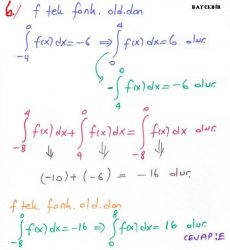 BAYCEBİR
6./ f tek fonk. old.dan
∫_{-4}^{0} f(x)dx = -6 ⇒ ∫_{0}^{4} f(x)dx = 6 olur.
-∫_{4}^{0} f(x)dx = -6 olur
∫_{-8}^{4} f(x)dx + ∫_{4}^{0} f(x)dx = ∫_{-8}^{0} f(x)dx olur
(-10) + (-6) = -16 olur
f tek fonk. old.dan
∫_{-8}^{0} f(x)dx = -16 ⇒ ∫_{0}^{8} f(x)dx = 16 olur.
CEVAP:E